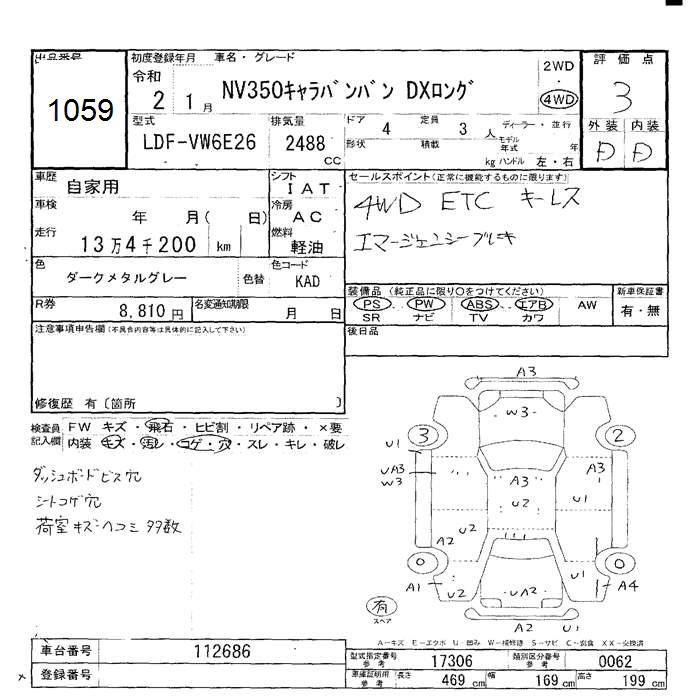 出品番号 初度登録年月 車名・グレード 2WD 評価点
1059 令和 2 1月 NV350キャラバンバン DXロング 4WD 3
型式 排気量 ドア 4 定員 3人 ディーラー・並行 外装 内装
LDF-VW6E26 2488 cc 形状 積載 kg モデル年式 年 ハンドル 左・右 D D
車歴 自家用 シフト IAT セールスポイント(正常に機能するものに限ります)
車検 年 月( 日) 冷房 AC 4WD ETC キーレス
走行 13万4千200 km 燃料 軽油 エマージェンシーブレーキ
色 ダークメタルグレー 色替 色コード KAD 装備品 (純正品に限り○をつけてください) 新車保証書
R券 8,810円 名変通知期限 月 日 PS PW ABS エアB AW 有・無
SR ナビ TV カワ
注意事項申告欄(不具合内容等は具体的に記入して下さい) 後日品
修復歴 有〔箇所 〕
検査員記入欄 FW キズ・飛石・ヒビ割・リペア跡・×要
内装 キズ・汚レ・コゲ・穴・スレ・キレ・破レ
ダッシュボードビス穴
シートコゲ穴
荷室キズヘコミ多数
A3
W3
3 2
U1
UA3 W3 A3 A3
U2 U1
A2 U2
0 0
A1 U2 UA2 U1 A4
有 スペア
A2 U1
A−キズ E−エクボ U−凹み W−補修跡 S−サビ C−腐食 XX−交換済
車台番号 112686 型式指定番号 参考 17306 類別区分番号 参考 0062
登録番号 車庫証明用 参考 長さ 469cm 幅 169cm 高さ 199cm